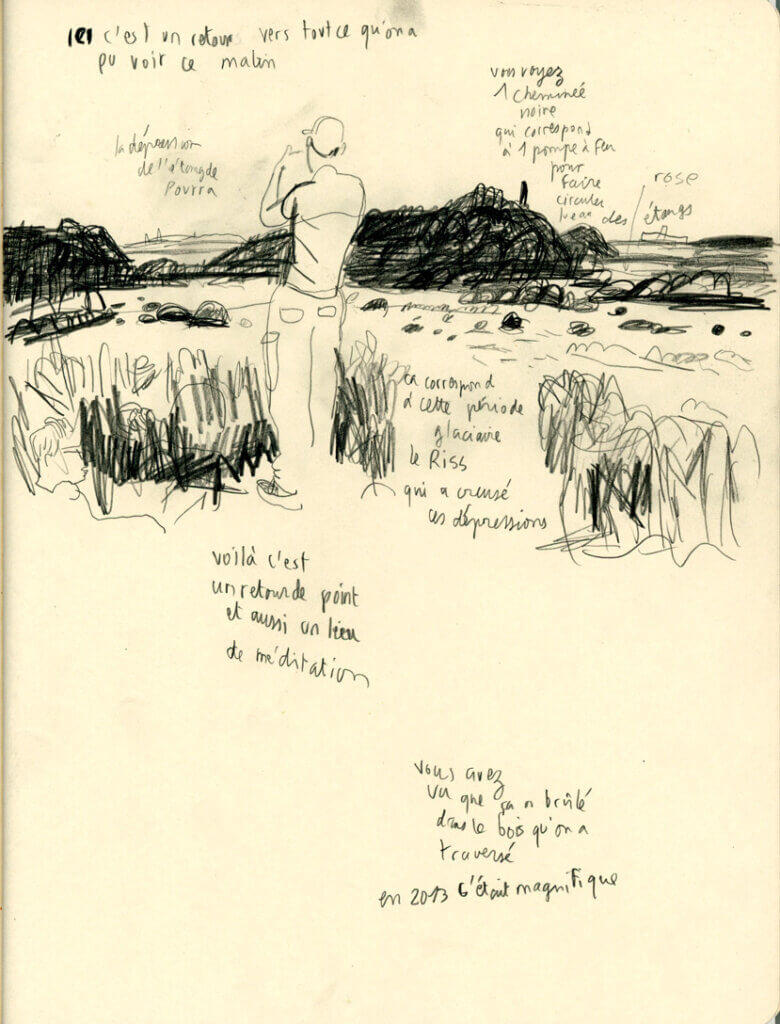 ici c'est un retour vers tout ce qu'on a
pu voir ce matin
vous voyez
1 cheminée
noire
qui correspond
à 1 pompe à feu
pour
faire
circuler
l'eau des étangs
rose
la dépression
de l'étang de
Pourra
ça correspond
à cette période
glaciaire
le Riss
qui a creusé
ces dépressions
voilà c'est
un retour de point
et aussi un lieu
de méditation
vous avez
vu que ça a brûlé
dans le bois qu'on a
traversé
en 2013 c'était magnifique